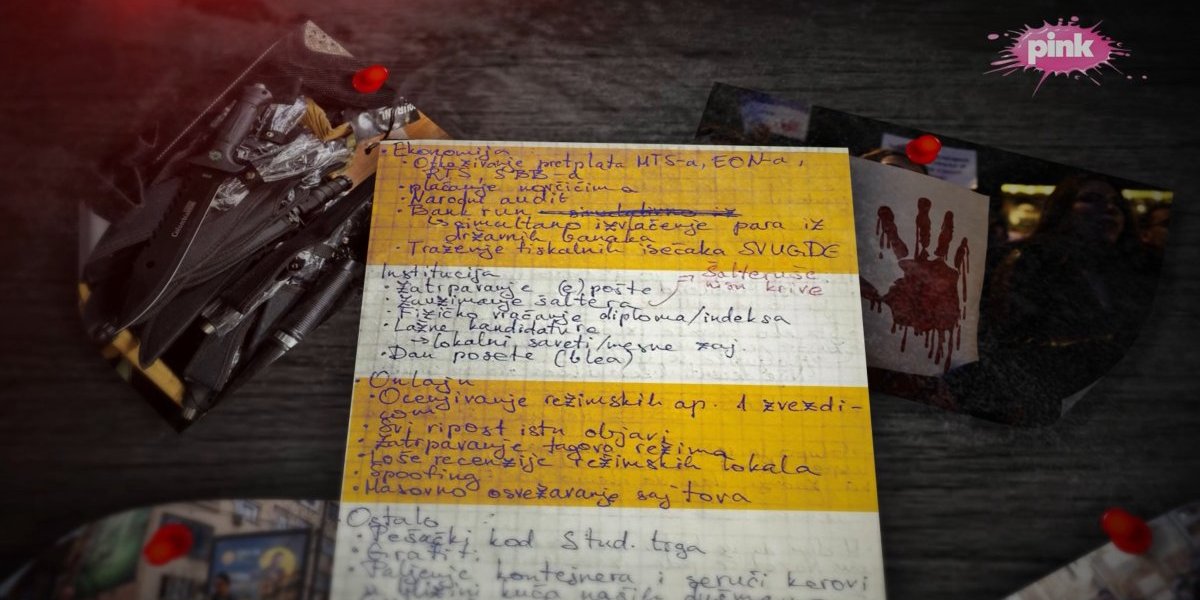 pink
• Ekonomija
• Otkazivanje pretplata MTS-a, EON-a,
RTS, SBB-a
• plaćanje novčićima
• Narodni audit
• Bank run
simultano izvlačenje para iz
državnih banaka
• Traženje fiskalnih isečaka SVUGDE
Institucija
• Zatrpavanje (e)pošte
šalteruše
nisu krive
• Zauzimanje šaltera
• Fizičko vraćanje diploma/indeksa
• Lažne kandidature
→ lokalni saveti/mesne zaj.
• Dan posete (blea)
• Onlajn
• Ocenjivanje režimskih ap. 1 zvezdi-
com
• Svi ripost istu objavi
• Zatrpavanje tagova režima
• Loše recenzije režimskih lokala
• Spoofing
• Masovno osvežavanje sajtova
Ostalo :
• Pešački kod Stud. trga
• Grafiti
• Paljenje kontejnera i serući kerovi
u blizini kuća naših